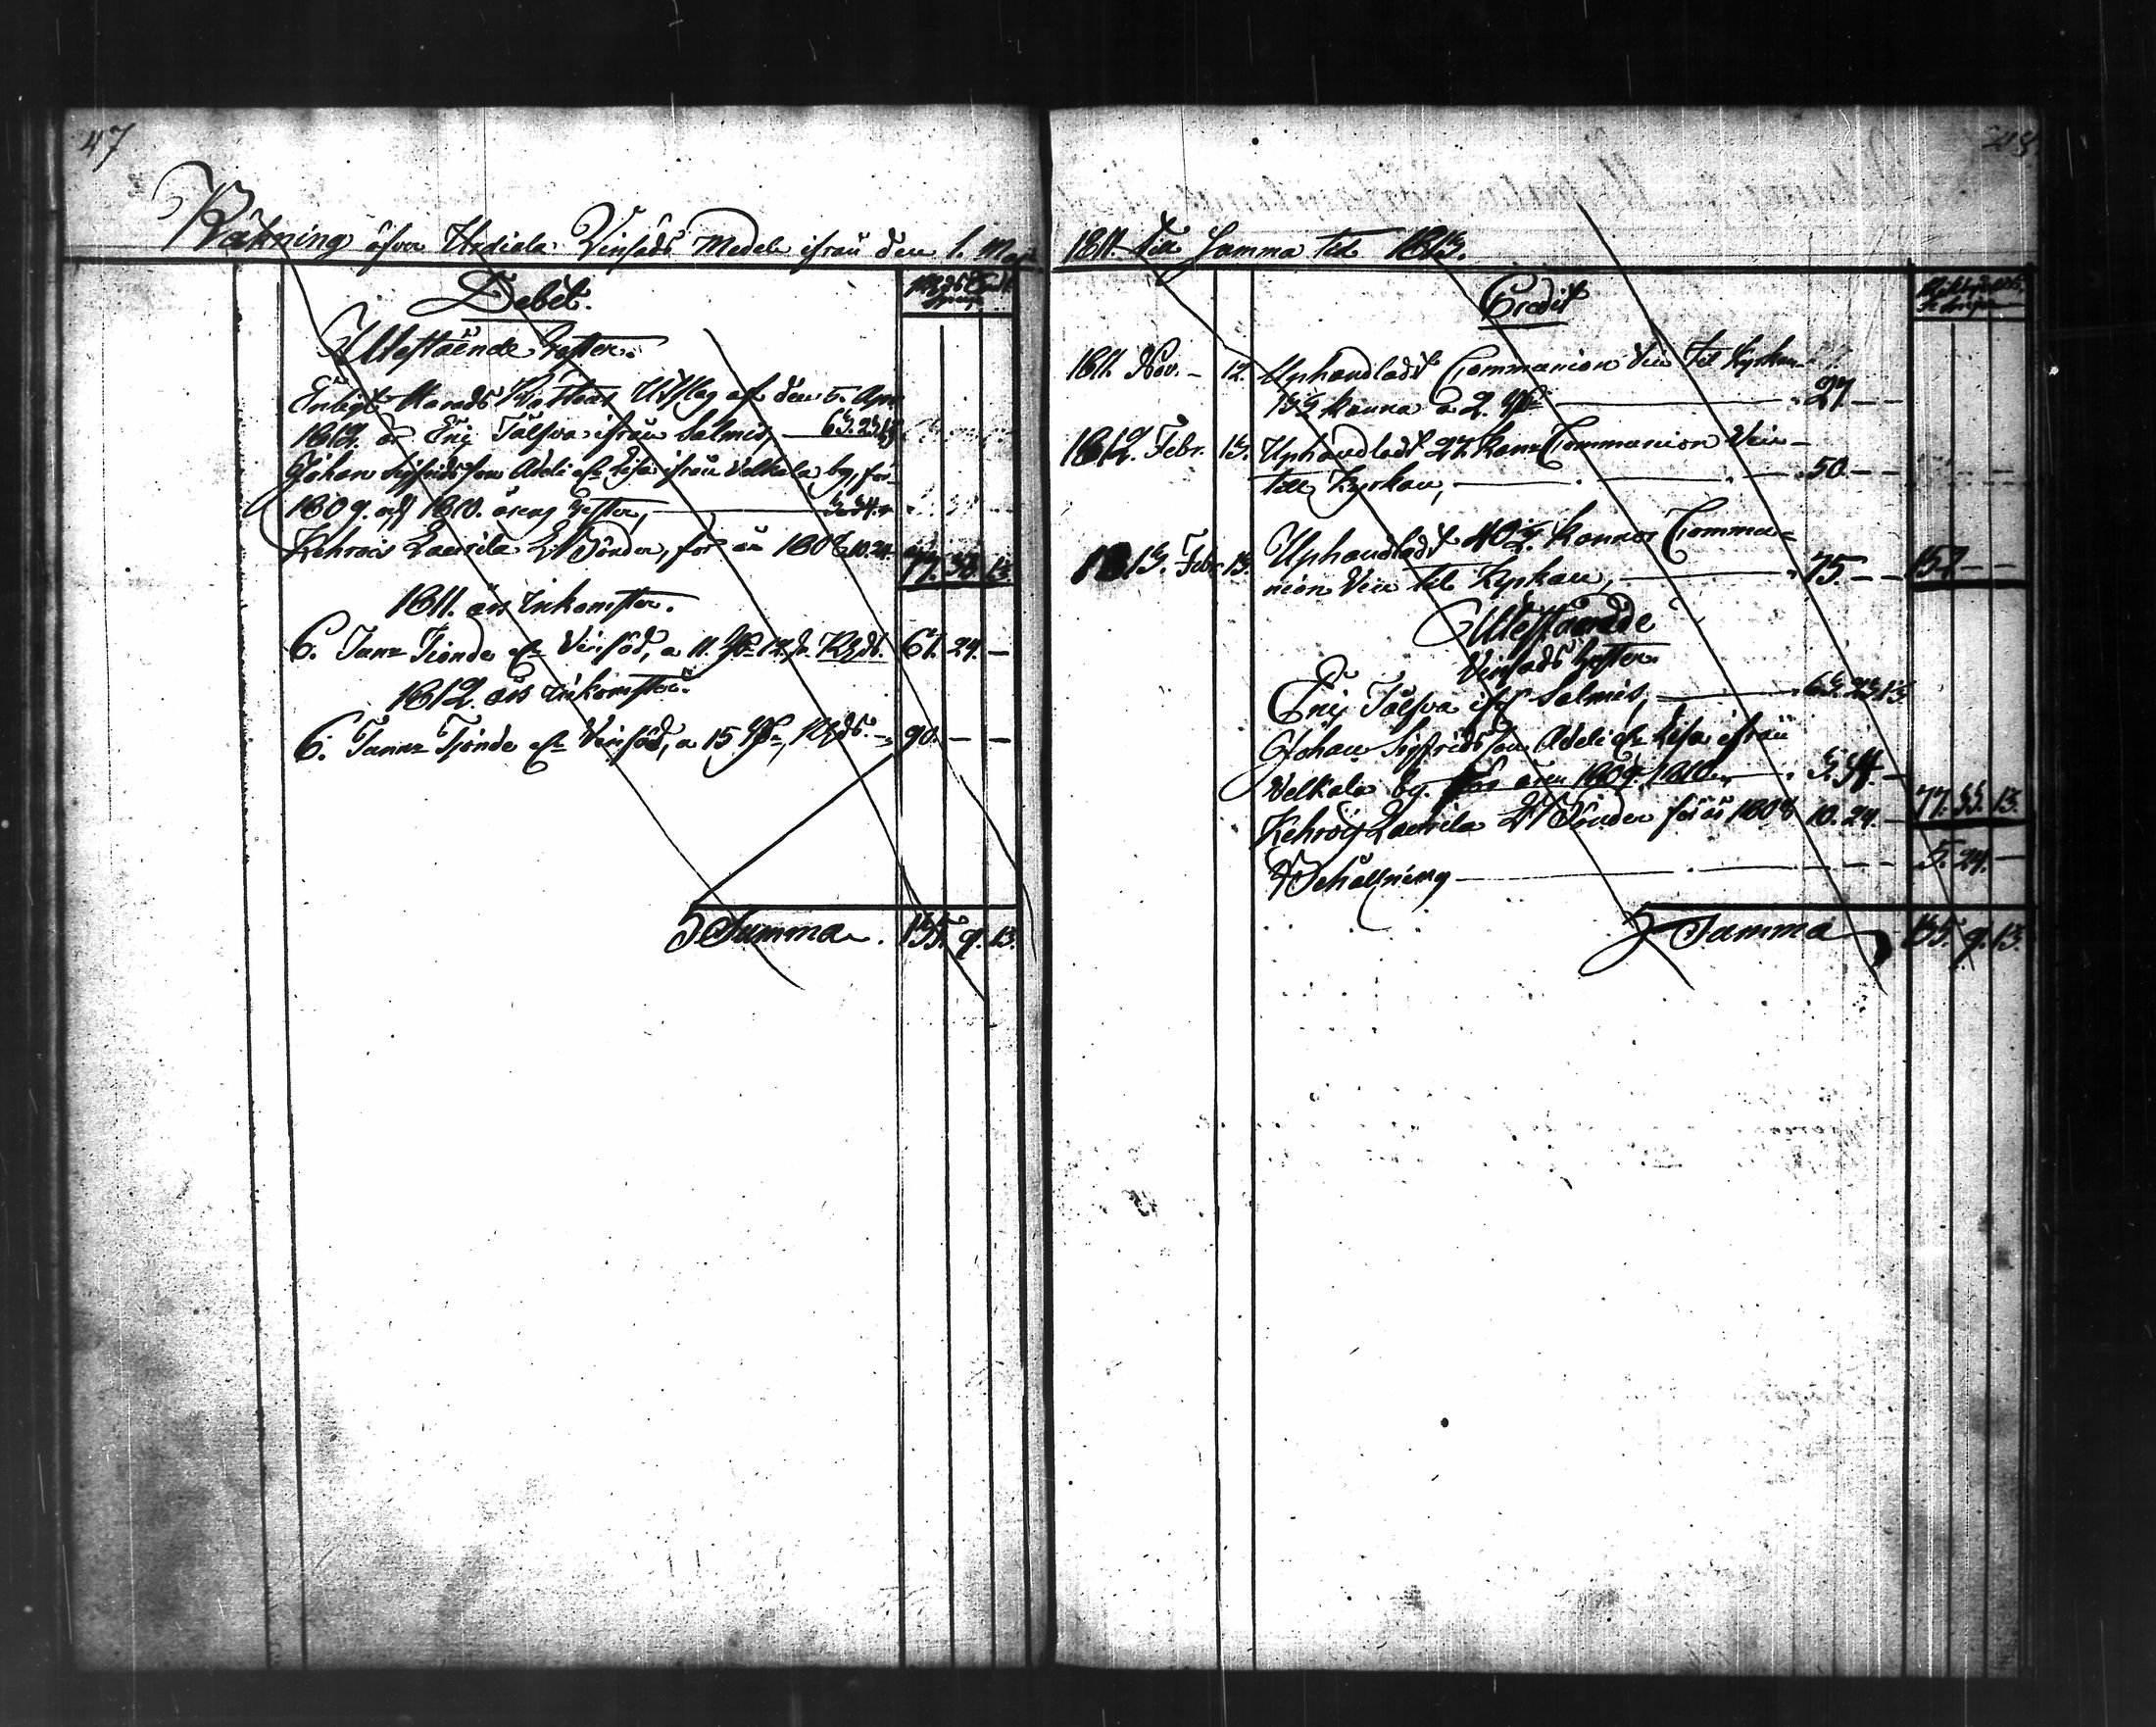 47
Räkning öfver Urdiala Vinsäds Medel ifrån den 1. Maji
Debet.
Utestående Rester.
Enligt Härads Rättens Utslag af den 5. Apr.
1812. är Eric Tålpa ifrån Salmis, 63. 23. 13
Johan Sigfridsson Adeli ifrån Velkala by, för
1809. och 1810. årens Rester, 3. 34.
Kehrois Laurila Tönder, för år 1808 10. 24.
77. 33. 13.
1811. års inkomster.
6. Tunr Tionde Vinsäd, a 11. 12. 67. 24. —
1812. års inkomster.
6. Tunnr Tjonde Vinsäd, a 15 90. — —
Summa. 235. 9. 13.
48
1811. till Samma tid 1813.
Credit
1811. Nov. 12. Uphandladt Communion Vin til Kyrkan
13½ kanna a 2. 27. —
1812. Febr. 13. Uphandladt 27. kann Communion Vin
till Kyrkan, 50. —
1813. Febr. 13. Uphandladt 40½. kannor Commu=
nion Vin till Kyrkan, 75. — — 152 — —
Utestående
Vinsäds Rester.
Eric Tålpa ifrån Salmis, 63. 23. 13
Johan Sigfridsson Adeli ifrån
Velkala by. för åren 1809. 1810. 3. 34. —
Kehrois Laurila Tönder för år 1808 10. 24. 77. 33. 13.
Behållning 5. 24. —
Summa 235. 9. 13.